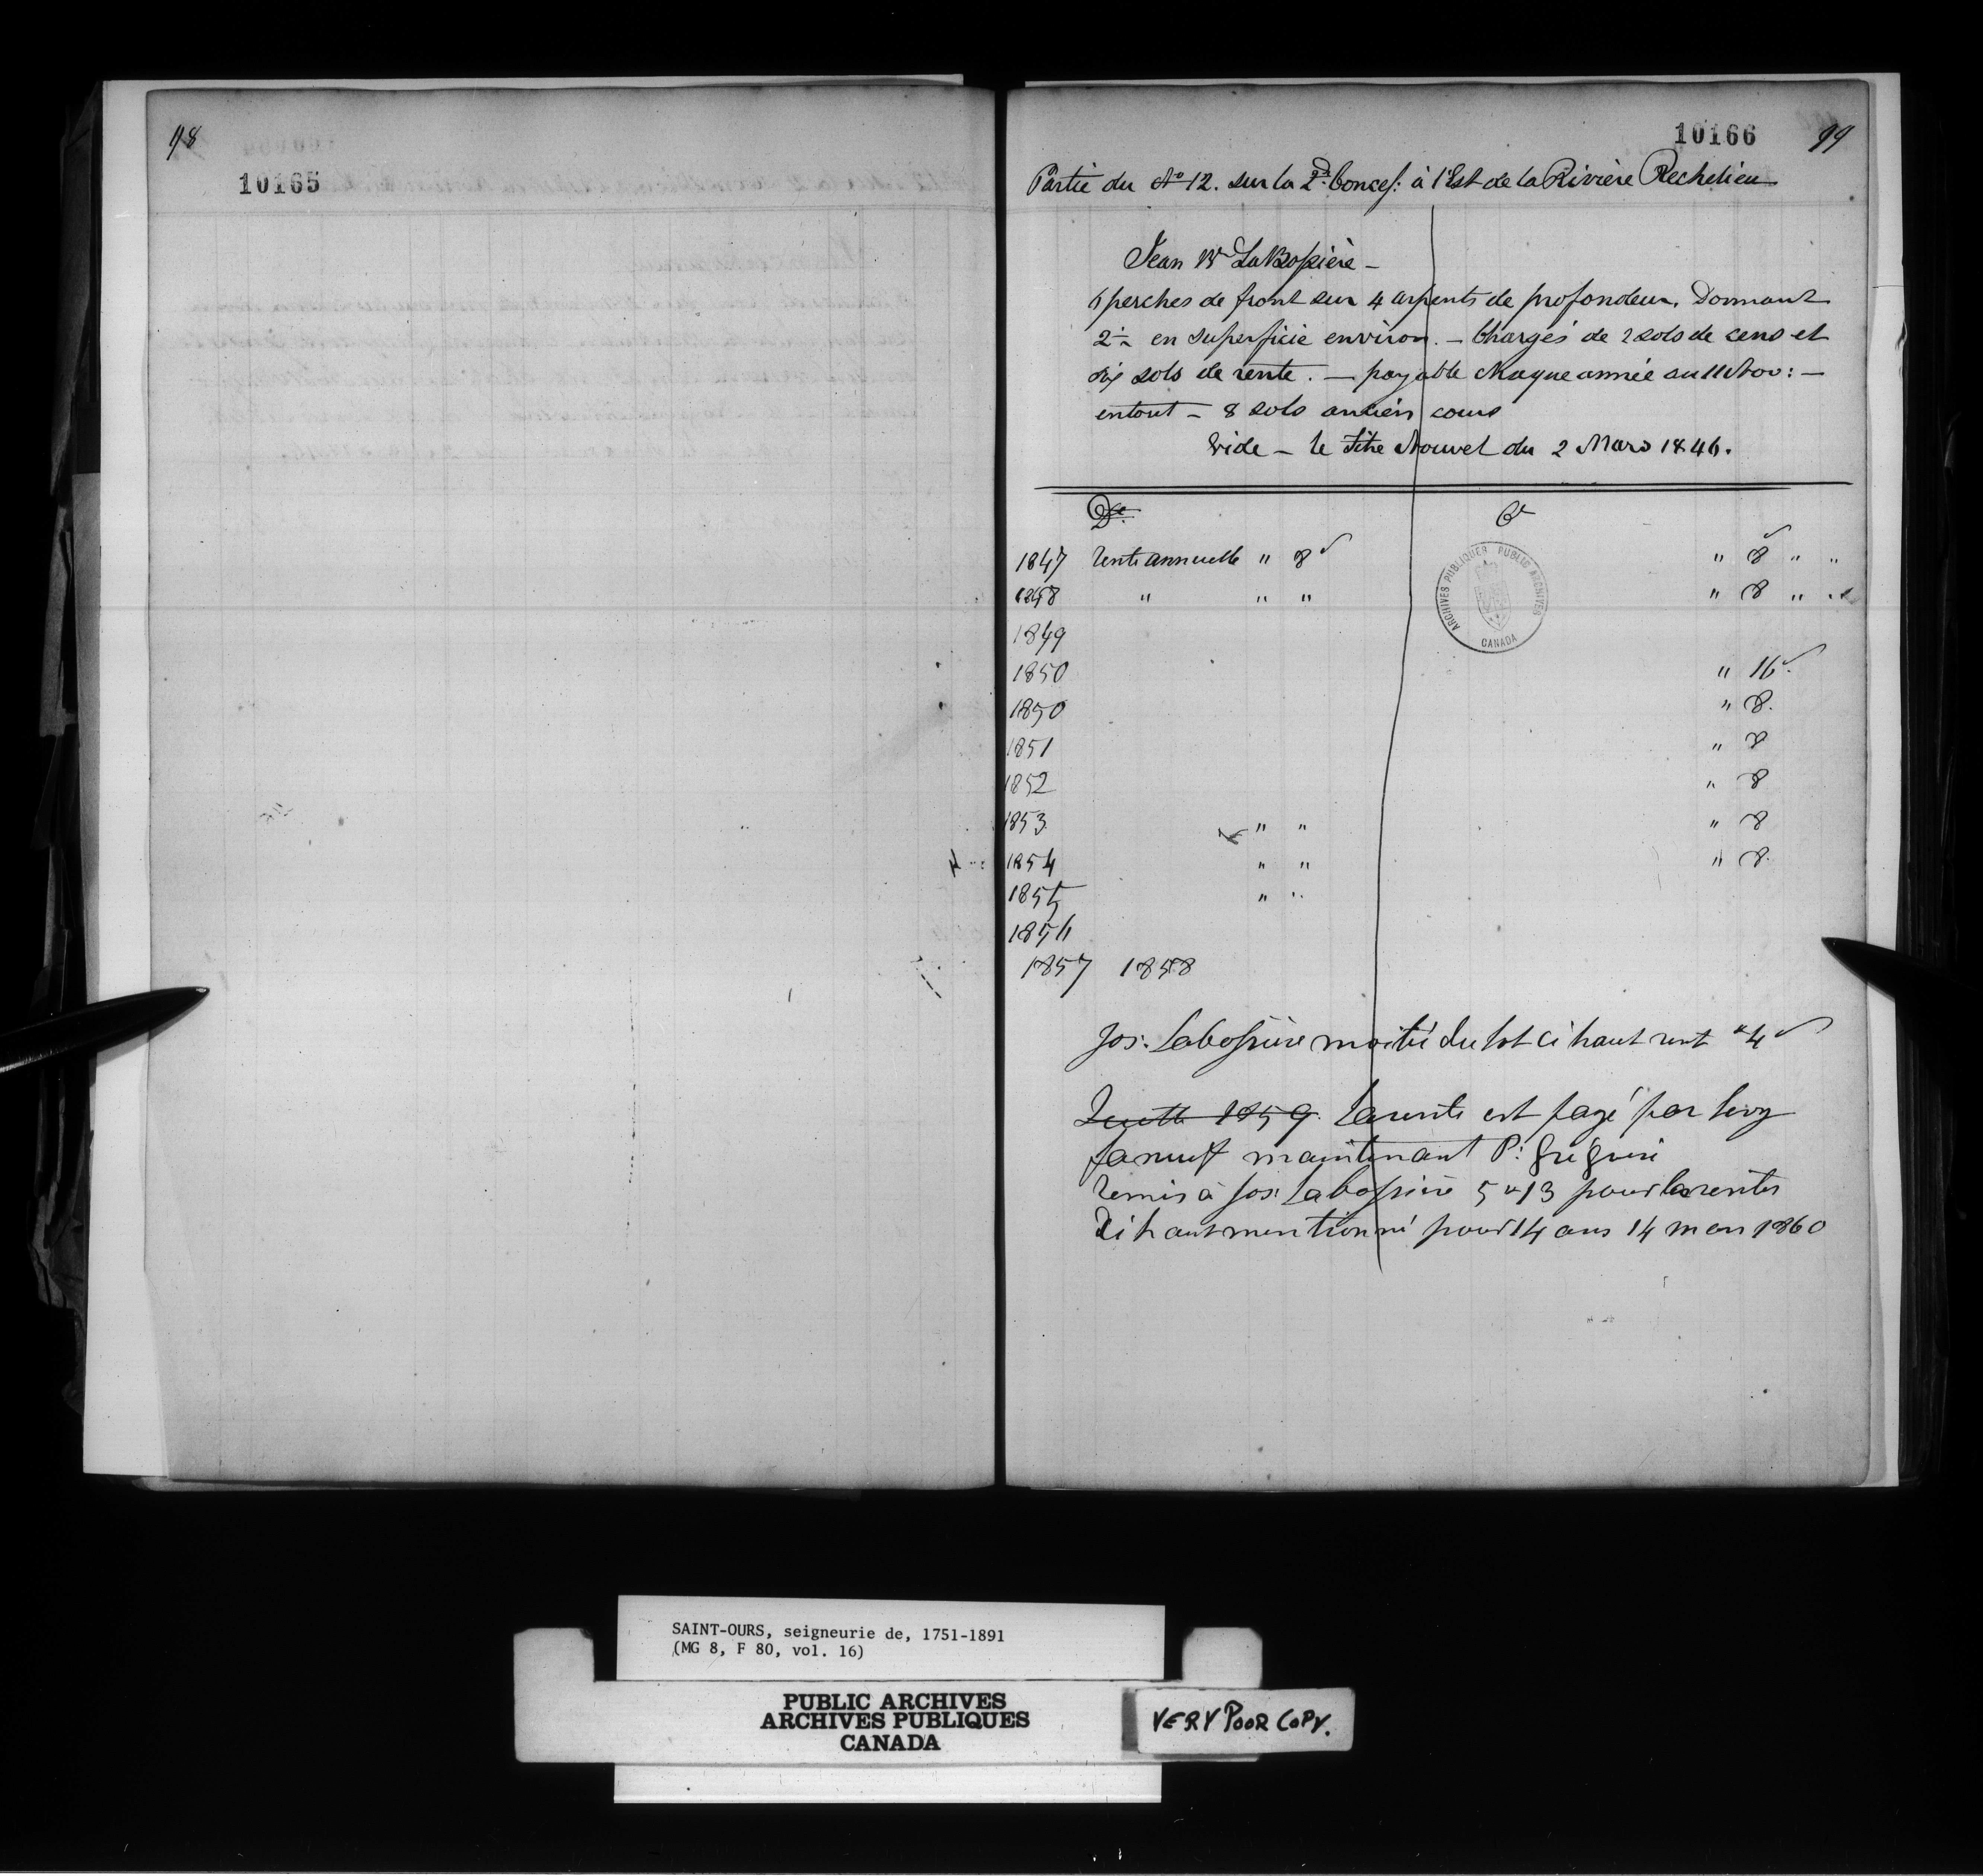 98
10165
10166 99
Partie du No 12. sur la 2de Concess: à l'Est de la Rivière Rechelieu
Jean Bte LaBossière -
6 perches de front sur 4 arpents de profondeur. Donnant
2 en superficie environ. - Chargés de 2 sols de cens et
six sols de rente. - payable chaque année au 11 Nov: -
entout - 8 sols ancien cours
Vide - le titre Nouvel du 2 Mars 1846.
Dr. Cr
1847 Rente annuelle " 8 " 8 " "
1848 " " " " 8 " "
1849
1850 " 16
1850 " 8.
1851 " 8
1852 " 8
1853 " " " 8
1854 " " " 8.
1855 " "
1856
1857 1858
ARCHIVES PUBLIQUES PUBLIC ARCHIVES
CANADA
Jos. Labossière moitié du lot ci haut rent " 4
1859. La rente est payé par
maintenant P: Grégoire
Remis à Jos: Labossière 5 " 13 pour la rentes
ci haut mentionné pour 14 ans 14 mars 1860
SAINT-OURS, seigneurie de, 1751-1891
(MG 8, F 80, vol. 16)
PUBLIC ARCHIVES
ARCHIVES PUBLIQUES
CANADA
VERY POOR COPY.